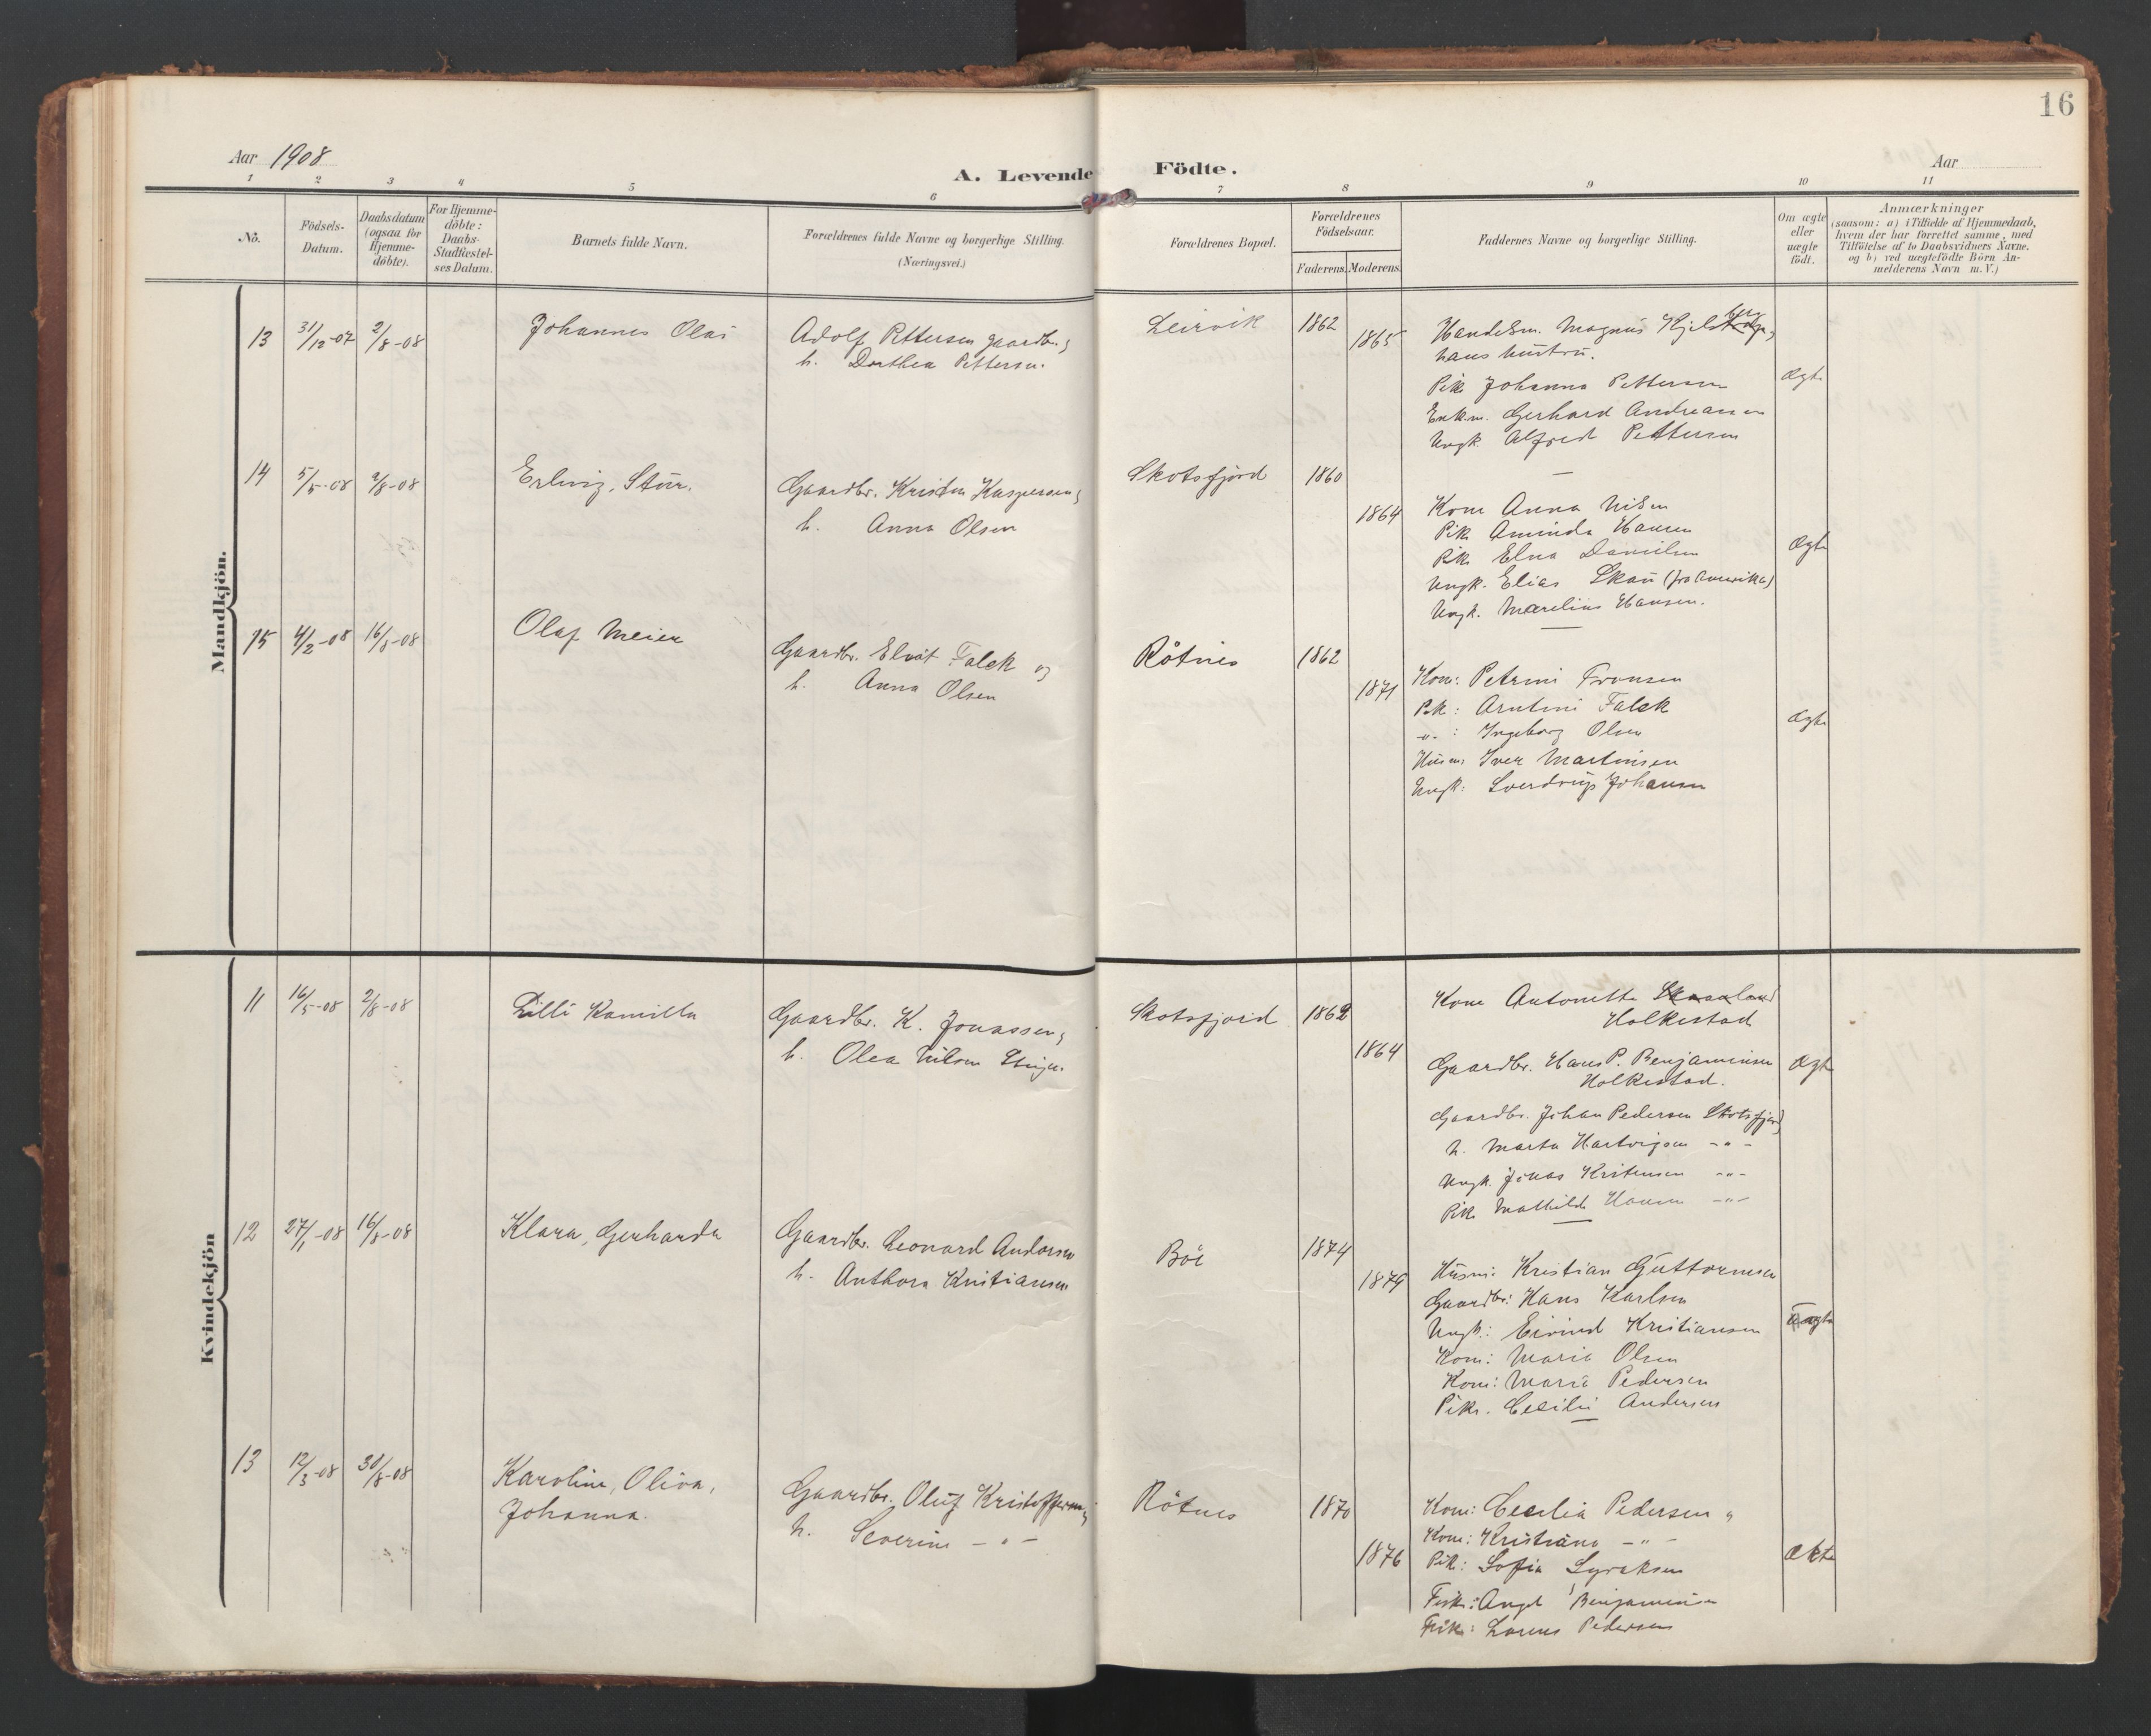 16
Aar 1908
A. Levende Födte.
Aar
1 2 3 4 5 6 7 8 9 10 11
No.
Födsels-Datum.
Daabsdatum (ogsaa for Hjemme-döbte).
For Hjemme-döbte: Daabs-Stadfæstel-ses Datum.
Barnets fulde Navn.
Forældrenes fulde Navne og borgerlige Stilling.
(Næringsvei.)
Forældrenes Bopæl.
Forældrenes Födselsaar.
Faderens. Moderens.
Faddernes Navne og borgerlige Stilling.
Om ægte eller uægte födt.
Anmærkninger
(saasom: a) i Tilfælde af Hjemmedaab,
hvem der har forrettet samme, med
Tilföielse af to Daabsvidners Navne.
og b) ved uægtefödte Börn An-
melderens Navn m. V.)
Mandkjön.
13 31/12-07 2/8-08 Johannes Olai
Adolf Pettersen gaardbr. &
h. Dorthea Pettersen.
Leirvik 1862 1865
Handelsm. Magnus
hans hustru.
Pik Johanna Pettersen
Enkm. Gerhard Andreasen
Ungk. Alfred Pettersen
Ægte
14 5/5-08 2/8-08 Erling, Stur.
Gaardbr. Kristen Kaspersen &
h. Anna Olsen
Skotsfjord 1860 1864
Kone Anna Nilsen
Pik. Aminda Hansen
Pik. Elna Danielsen
Ungk. Elias Skau (fra Amerika)
Ungk. Marelius Hansen.
Ægte
15 4/2-08 16/8-08 Olaf Meier
Gaardbr. Elvat Falck og
h. Anna Olsen
Råtnes 1862 1871
Kone: Petrine Fronsen
Pik: Arntine Falck
-"-: Ingeborg Olsen
Husm: Iver Martinsen
Ungk: Sverdrup Johansen
Ægte
Kvindekjön
11 16/5-08 2/8-08 Lilli Kamilla
Gaardbr. K. Jonassen &
h. Olea Nilsen
Skotsfjord 1862 1864
Kone Antonette Skaaland
Holkestad
Gaardbr. Hans P. Benjaminsen
Holkestad.
Gaardbr. Johan Pedersen Skotsfjord
h. Marta Hartvigsen -"-
Ungk. Jonas Kristensen -"-
Pik. Mathilde Hansen -"-
Ægte
12 27/1-08 16/8-08 Klara, Gerharda
Gaardbr. Leonard Andersen
h. Anthora Kristiansen
Böe 1874 1879
Husm: Kristian Guttormsen
Gaardbr: Hans Karlsen
Ungk.: Eivind Kristiansen
Kone: Maria Olsen
Kone: Maria Pedersen
Pike. Cecilie Andersen
13 12/3-08 30/8-08 Karoline, Oliva,
Johanna.
Gaardbr. Oluf Kristoffersen &
h. Severine -"-
Råtnes 1870 1876
Kone: Cecilia Pedersen "
Kone: Kristiane -"-
Pik: Sofia Syraksen
Fisk: Angel Benjaminsen
Fisk: Lorens Pedersen
Ækte